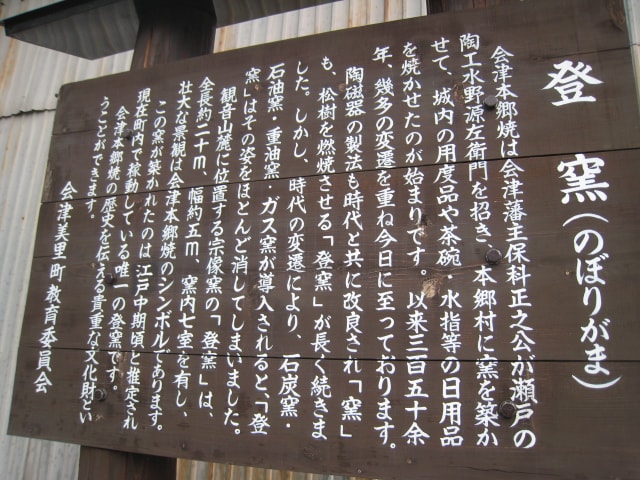 登窯(のぼりがま)
会津本郷焼は会津藩主保科正之公が瀬戸の
陶工水野源左衛門を招き、本郷村に窯を築か
せて、城内の用度品や茶碗・水指等の日用品
を焼かせたのが始まりです。以来三百五十余
年、幾多の変遷を重ね今日に至っております。
陶磁器の製法も時代と共に改良され「窯」
も、松樹を燃焼させる「登窯」が長く続きま
した。しかし、時代の変遷により、石炭窯・
石油窯・重油窯・ガス窯が導入されると、「登
窯」はその姿をほとんど消してしまいました。
観音山麓に位置する宗像窯の「登窯」は、
全長約二十m、幅約五m、窯内七室を有し、
壮大な景観は会津本郷焼のシンボルであります。
この窯が築かれたのは江戸中期頃と推定され
現在町内で稼動している唯一の登窯です。
会津本郷焼の歴史を伝える貴重な文化財とい
うことができます。
会津美里町教育委員会